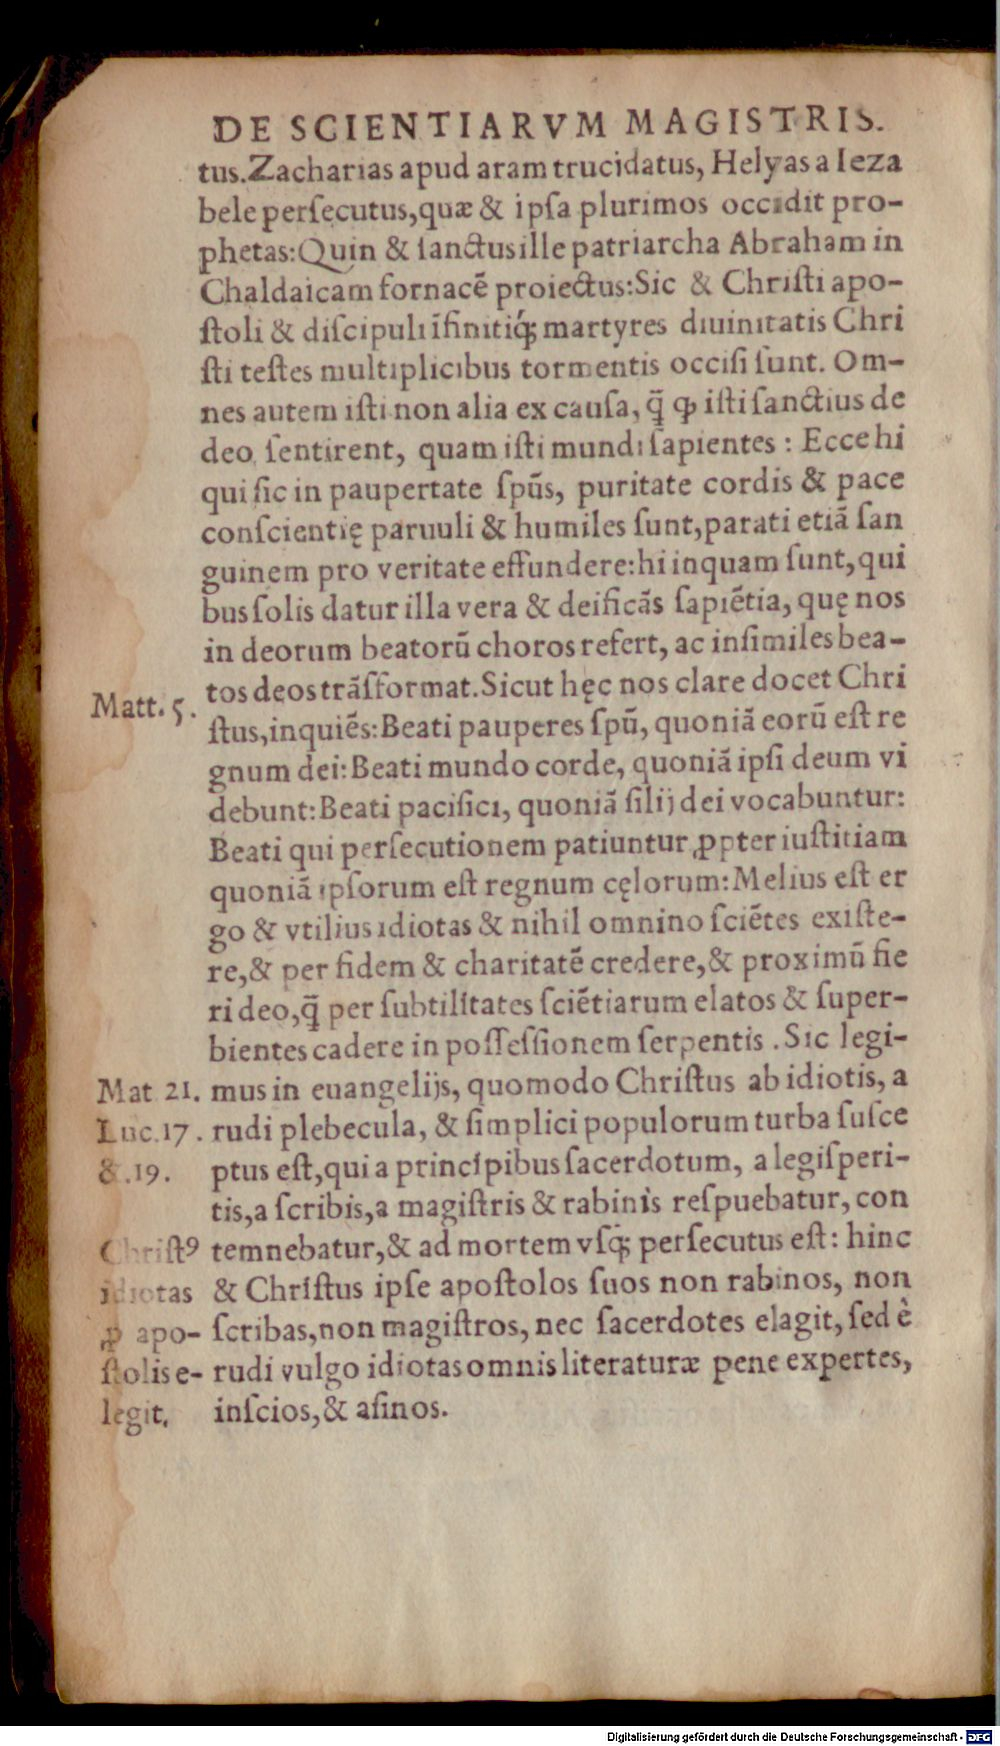 DE SCIENTIARVM MAGISTRIS.
tus.Zacharias apud aram trucidatus, Helyas a Ieza
bele perſecutus,quæ & ipſa plurimos occidit pro-
phetas:Quin & ſanctus ille patriarcha Abraham in
Chaldaicam fornacē proiectus:Sic & Chriſti apo-
ſtoli & diſcipuli īfinitiq́; martyres diuinitatis Chri
ſti teſtes multiplicibus tormentis occiſi ſunt. Om-
nes autem iſti non alia ex cauſa, q̄̃ ꝙ iſti ſanctius de
deo ſentirent, quam iſti mundi ſapientes : Ecce hi
qui ſic in paupertate ſpūs, puritate cordis & pace
conſcientię paruuli & humiles ſunt,parati etiā ſan
guinem pro veritate effundere:hi inquam ſunt,qui
bus ſolis datur illa vera & deificās ſapiētia, quę nos
in deorum beatorū choros refert, ac inſimiles bea-
Matt. 5. tos deos trāſformat.Sicut hęc nos clare docet Chri
ſtus,inquiēs:Beati pauperes ſpū, quoniā eorū eſt re
gnum dei:Beati mundo corde, quoniā ipſi deum vi
debunt:Beati pacifici, quoniā filij dei vocabuntur:
Beati qui perſecutionem patiuntur ꝓpter iuſtitiam
quoniā ipſorum eſt regnum cęlorum:Melius eſt er
go & vtilius idiotas & nihil omnino ſciētes exiſte-
re,& per fidem & charitatē credere,& proximū fie
ri deo,q̄̃ per ſubtilitates ſciētiarum elatos & ſuper-
bientes cadere in poſſeſſionem ſerpentis . Sic legi-
Mat 21. mus in euangelijs, quomodo Chriſtus ab idiotis, a
Luc.17. rudi plebecula, & ſimplici populorum turba ſuſce
&.19. ptus eſt,qui a principibus ſacerdotum, a legiſperi-
tis,a ſcribis,a magiſtris & rabinis reſpuebatur, con
Chriſtꝰ temnebatur,& ad mortem vſq; perſecutus eſt: hinc
idiotas & Chriſtus ipſe apoſtolos ſuos non rabinos, non
ꝓ apo- ſcribas,non magiſtros, nec ſacerdotes elagit, ſed è
ſtolis e- rudi vulgo idiotas omnis literaturæ pene expertes,
legit. inſcios,& aſinos.
Digitalisierung gefördert durch die Deutsche Forschungsgemeinschaft - DFG